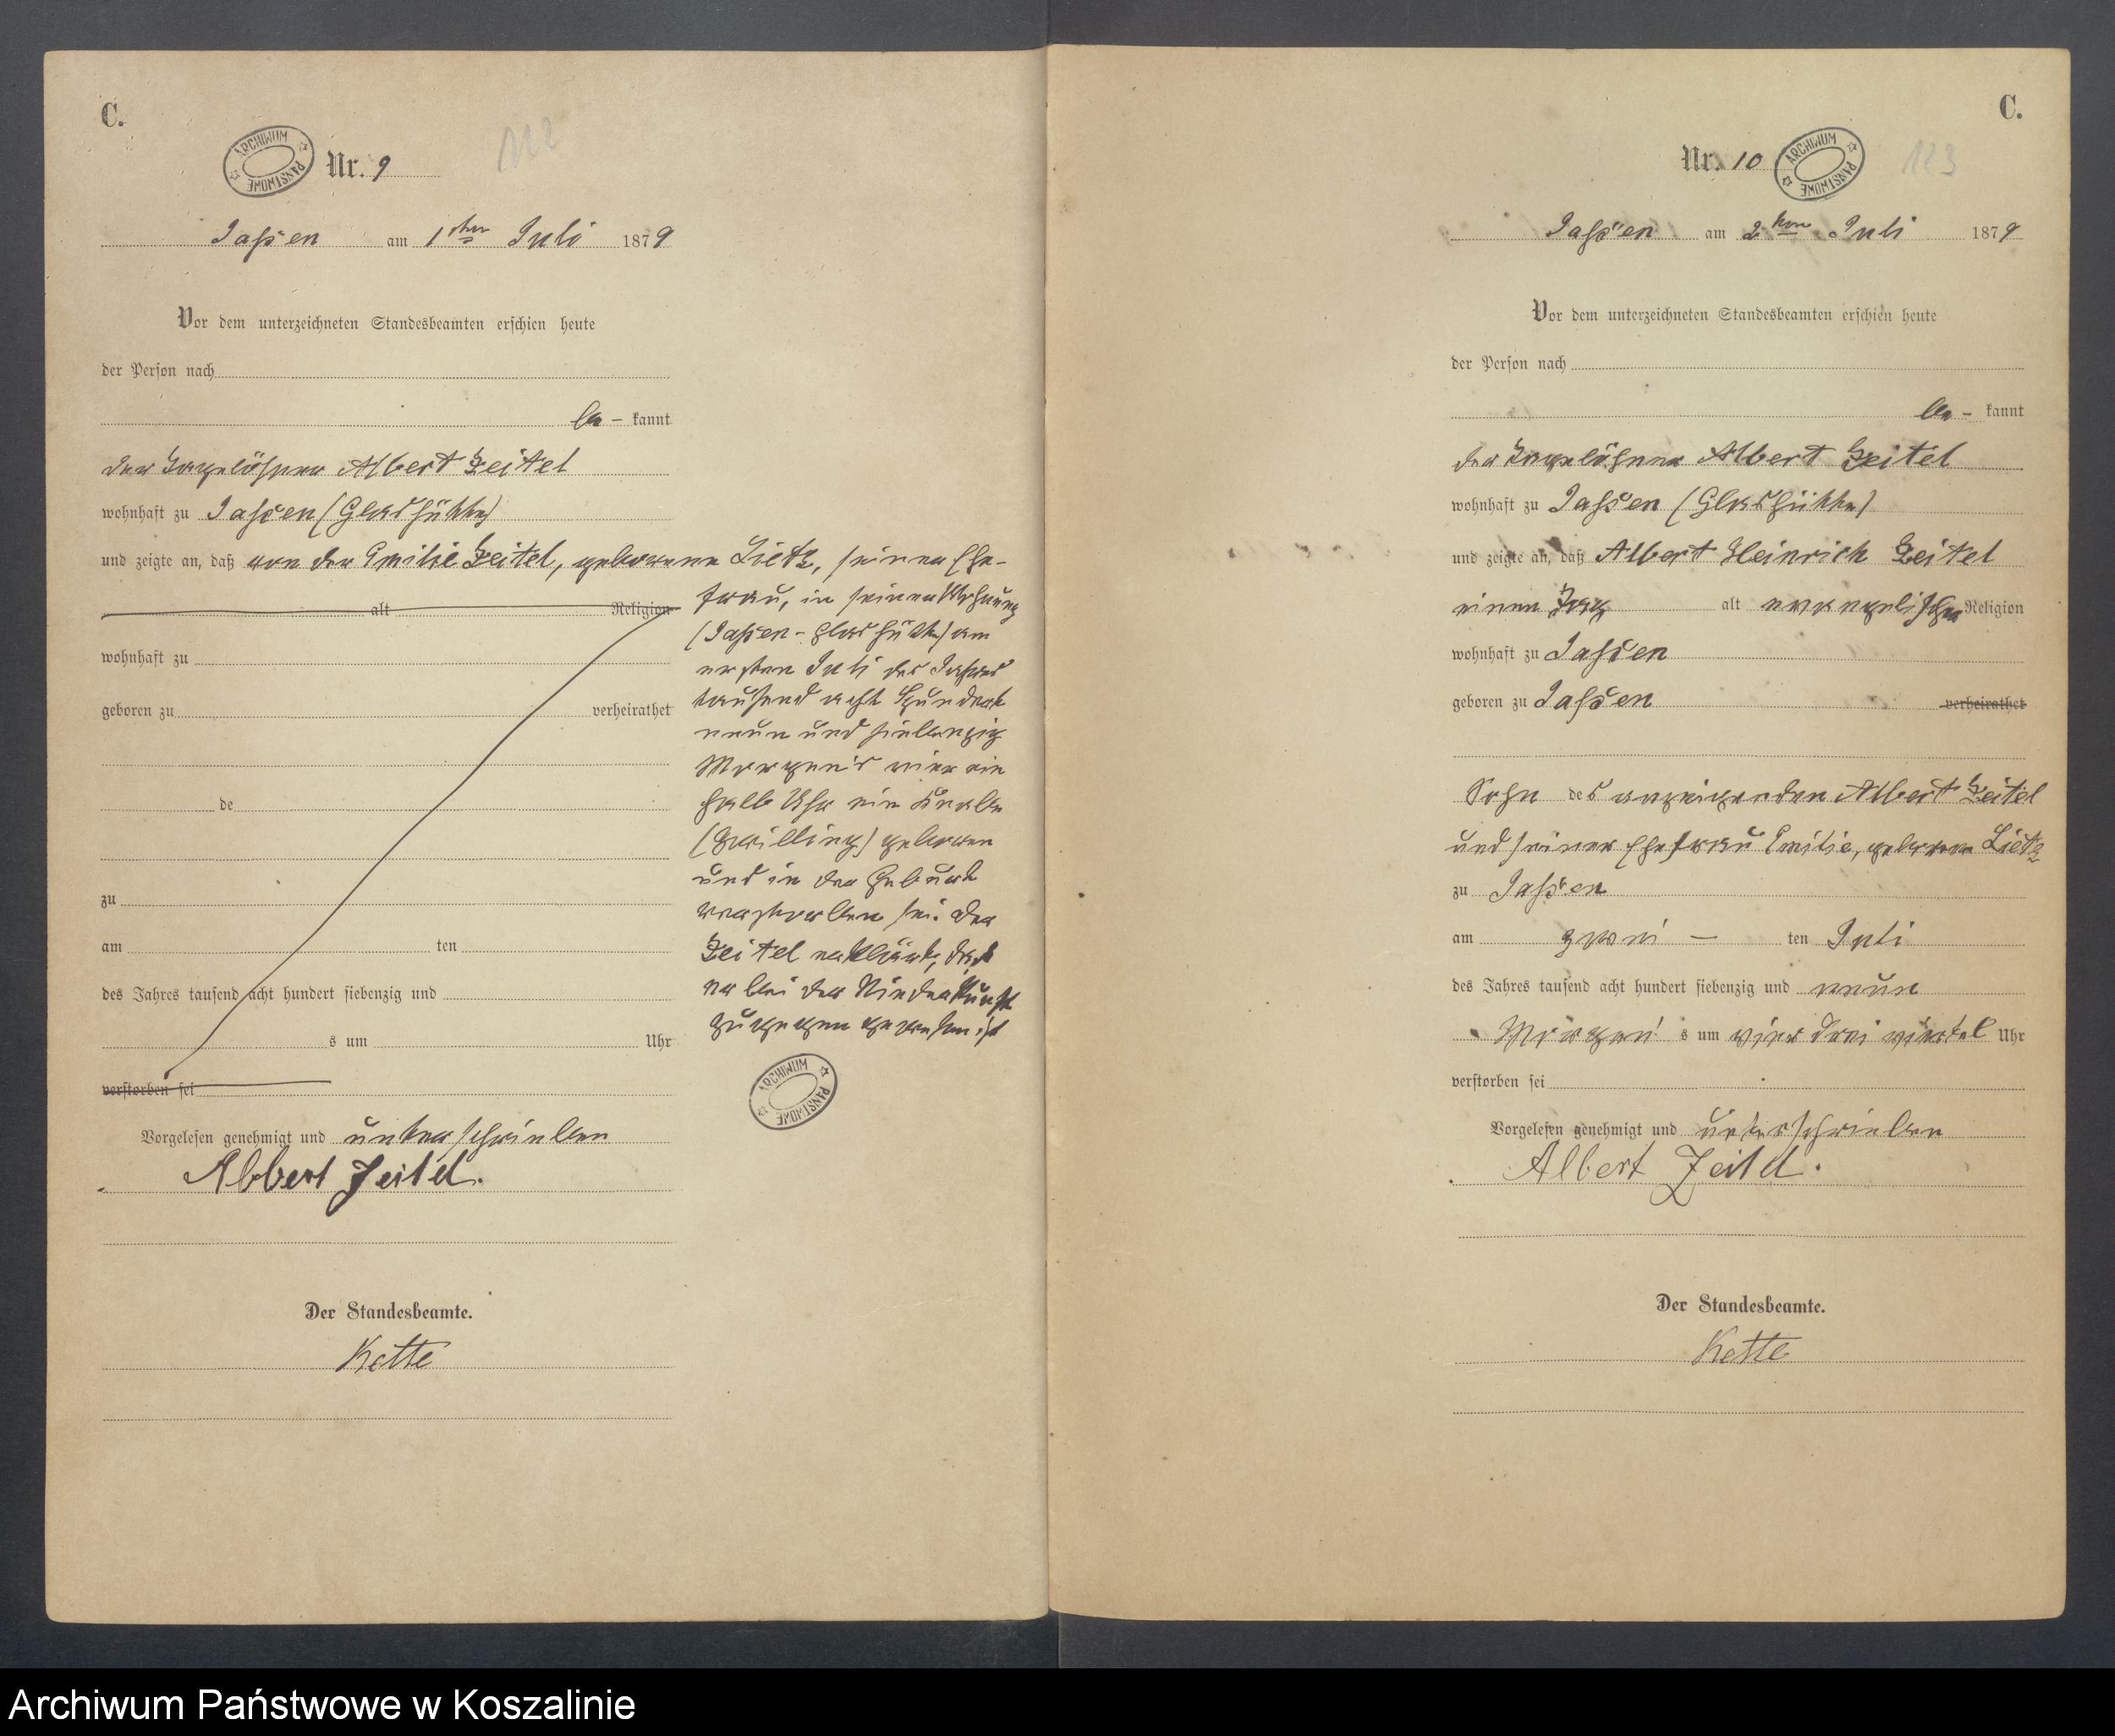 C.
ARCHIWUM PAŃSTWOWE
Nr. 9
112
Jassen am 1ten Juli 1879
Vor dem unterzeichneten Standesbeamten erschien heute
der Person nach
be- kannt
der Tagelöhner Albert Zeitel
wohnhaft zu Jassen (Glashütte)
und zeigte an, daß von der Emilie Zeitel, geborene Lietz, seiner Ehe-
alt Religion
frau, in seiner Wohnung
(Jassen-Glashütte) am
wohnhaft zu
ersten Juli des Jahres
geboren zu verheirathet
tausend acht hundert
neun und siebenzig
Morgens vier ein
de
halb Uhr ein Knabe
(Zwilling) geboren
und in der Geburt
zu
verstorben sei. Der
am ten
Zeitel erklärte, daß
des Jahres tausend acht hundert siebenzig und
er bei der Niederkunft
zugegen gewesen ist
s um Uhr
ARCHIWUM PAŃSTWOWE
verstorben sei
Vorgelesen genehmigt und unterschrieben
Albert Zeitel.
Der Standesbeamte.
Kette
C.
Nr. 10
ARCHIWUM PAŃSTWOWE
123
Jassen am 2ten Juli 1879
Vor dem unterzeichneten Standesbeamten erschien heute
der Person nach
be- kannt
der Tagelöhner Albert Zeitel
wohnhaft zu Jassen (Glashütte)
und zeigte an, daß Albert Heinrich Zeitel
einen Tag alt evangelischer Religion
wohnhaft zu Jassen
geboren zu Jassen verheirathet
Sohn des anzeigenden Albert Zeitel
und seiner Ehefrau Emilie, geborene Lietz
zu Jassen
am zwei – ten Juli
des Jahres tausend acht hundert siebenzig und neun
Morgen s um vier drei viertel Uhr
verstorben sei
Vorgelesen genehmigt und unterschrieben
Albert Zeitel.
Der Standesbeamte.
Kette
Archiwum Państwowe w Koszalinie